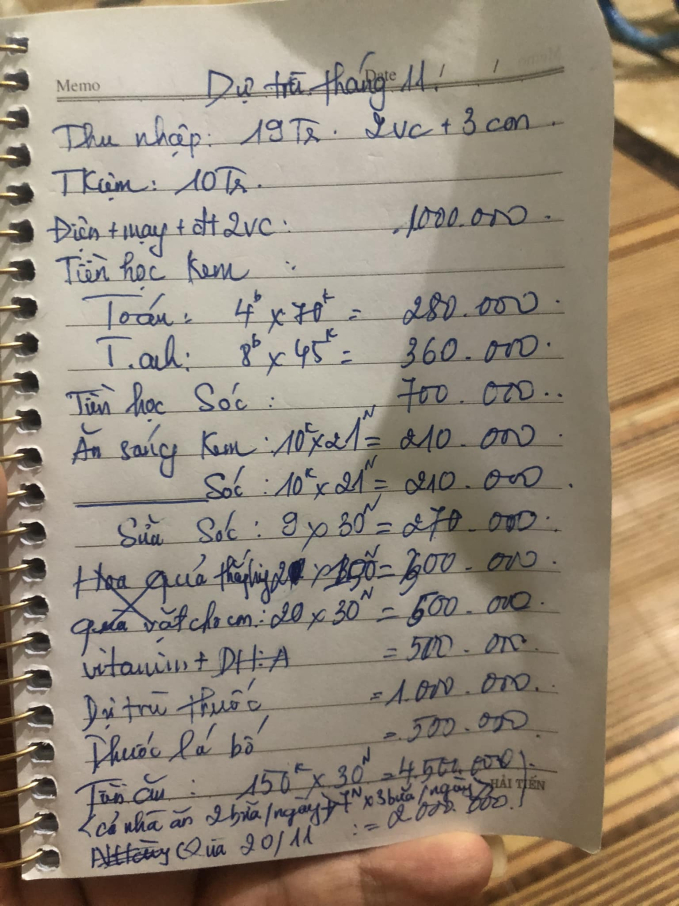 Memo Date / /
Dự trù tháng 11.
Thu nhập: 19Tr. 2vc + 3 con.
TKiệm: 10Tr.
Điện + mạy + đt 2vc: 1000.000.
Tiền học Kem :
Toán: 4b x 70k = 280.000.
T.anh: 8b x 45k = 360.000.
Tiền học Sóc : 700.000..
Ăn sáng Kem : 10k x 21N = 210.000
Sóc : 10k x 21N = 210.000.
Sữa Sóc : 9 x 30N = 270.000.
Hoa quả x 00.000
quà vặt cho con: 20 x 30N = 600.000.
vitamin + DHA = 500.000.
Dự trù thuốc = 1.000.000.
Thuốc lá bố = 500.000.
Tiền ăn : 150k x 30N = 4.500.000
HẢI TIẾN
(cả nhà ăn 2 bữa/ngày, 7N x 3 bữa/ngày)
Quà 20/11 : = 2.000.000.